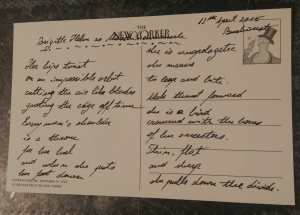 THE
NEW YORKER
12th April 2015
Bucharest
Brigitte Helm as
Her hips twist
on an impossible orbit
cutting the air like blades
grating the edge off time
Every man's shoulder
is a throne
for her heel
and when she puts
her foot down
she is unapologetic
she means
to leap and bite.
thrust forward
she is a bird
crowned with the bones
of her ancestors.
Thin, flat
and sharp
she pulls down the divide.